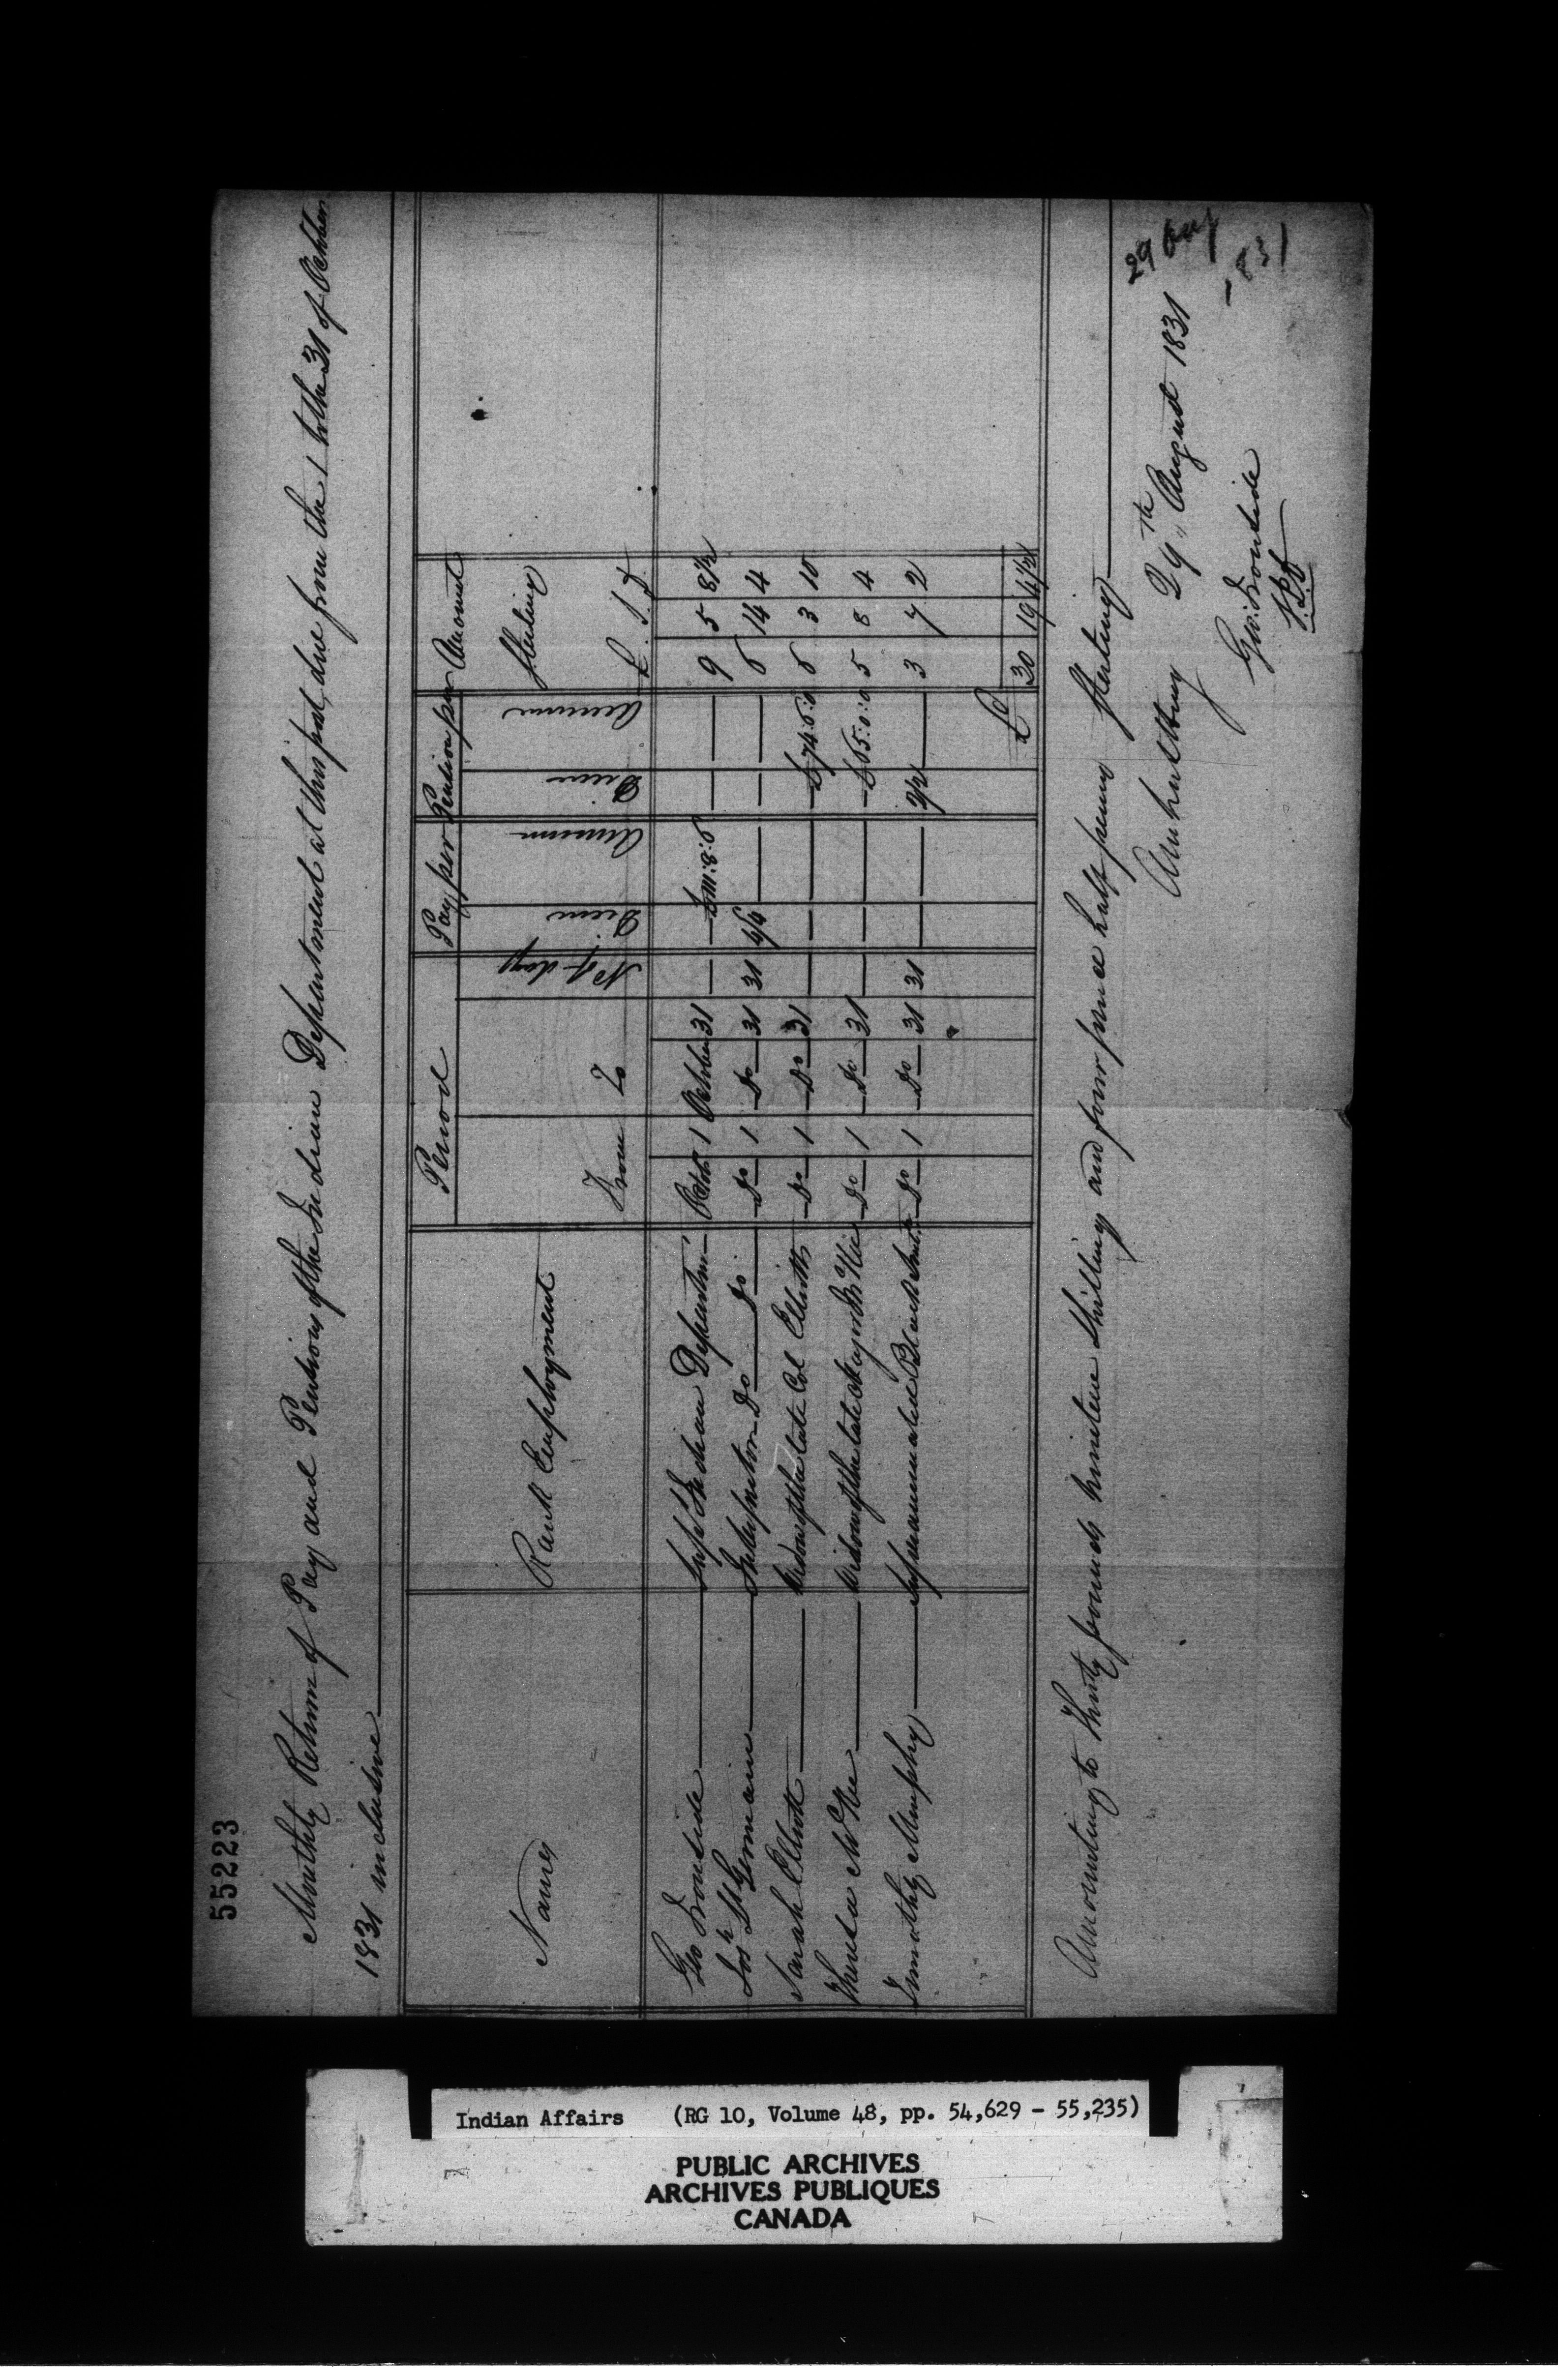 55223
Monthly Return of Pay and Pentions of the Indian Department at this post, due from the 1 to the 31 of October
1831 inclusive
Names Rank Employment Period Pay per Pention per Amount
From To No of days Diem Annum Diem Annum Sterling
£ S D
Geo Ironside Supt Indian Departmt Octobr 1 October 31 — — £111:8:6 — — 9 5 8½
Josh St Germain Interpreter Do Do Do 1 Do 31 31 4/4 — — — 6 14 4
Sarah Elliott Widow of the late Col Elliott Do 1 Do 31 — — — — £74:6:0 6 3 10
Theresa McKee Widow of the late Major McKee Do 1 Do 31 — — — — £65:0:0 5 8 4
Timothy Murphy Superannuated Blacksmith Do 1 Do 31 31 — — 2/2 — 3 7 2
£ 30 19 4½
Amounting to Thirty pounds nineteen Shillings and four pence half penny Sterling
Amherstburg 29th August 1831
Geo: Ironside
S.I.A
29 Aug
1831
Indian Affairs (RG 10, Volume 48, pp. 54,629 - 55,235)
PUBLIC ARCHIVES
ARCHIVES PUBLIQUES
CANADA